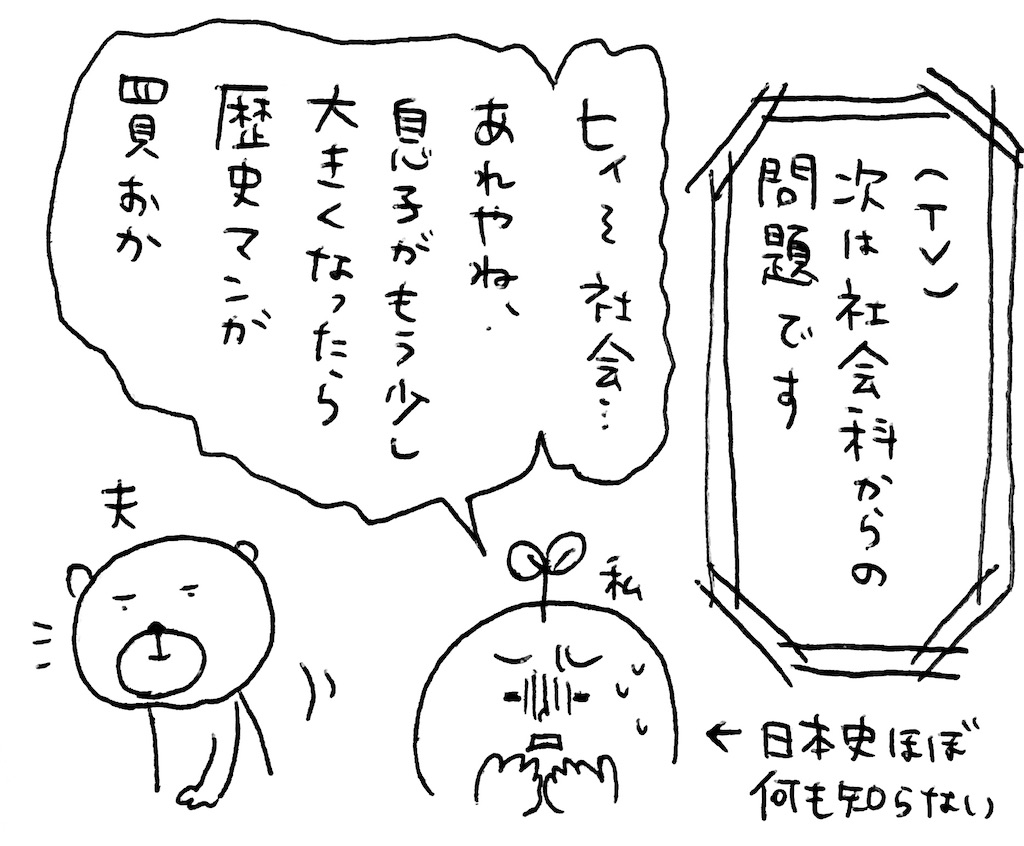 (TV)
次は社会科からの
問題です
ヒィ〜社会…
あれやね、
息子がもう少し
大きくなったら
歴史マンガ
買おか
夫
私
←日本史ほぼ
何も知らない